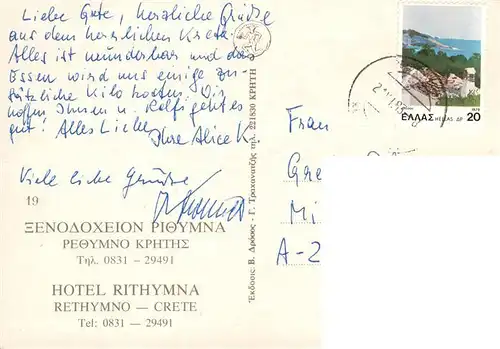 Liebe Grete, herzliche Grüße
aus dem herrlichen Kreta.
Alles ist wunderbar und das
Essen wird uns einige zu-
sätzliche Kilo kosten. Wir
hoffen Ihnen u. Rolf geht es
gut! Alles Liebe
Ihre Alice K
Viele liebe Grüsse
19
ΞΕΝΟΔΟΧΕΙΟΝ ΡΙΘΥΜΝΑ
ΡΕΘΥΜΝΟ ΚΡΗΤΗΣ
Τηλ. 0831 – 29491
HOTEL RITHYMNA
RETHYMNO — CRETE
Tel: 0831 – 29491
Έκδοσις: Β. Δρόσος - Γ. Τραχανατζής τηλ. 221830 ΚΡΗΤΗ
ΕΛΛΑΣ HELLAS ΔΡ 20
1979
Frau
Gre
Mi
A-2